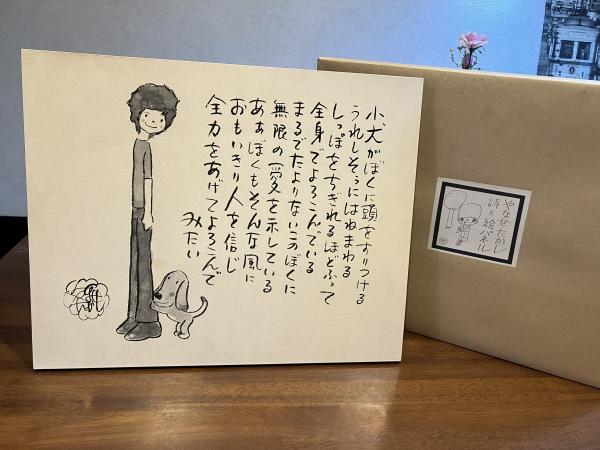 小犬がぼくに頭をすりつける
うれしそうにはねまわる
しっぽをちぎれるほどふって
全身でよろこんでいる
まるでたよりないこのぼくに
無限の愛を示している
あぁぼくもそんな風に
おもいきり人を信じ
全力をあげてよろこんで
みたい
やなせたかし
詩と絵パネル